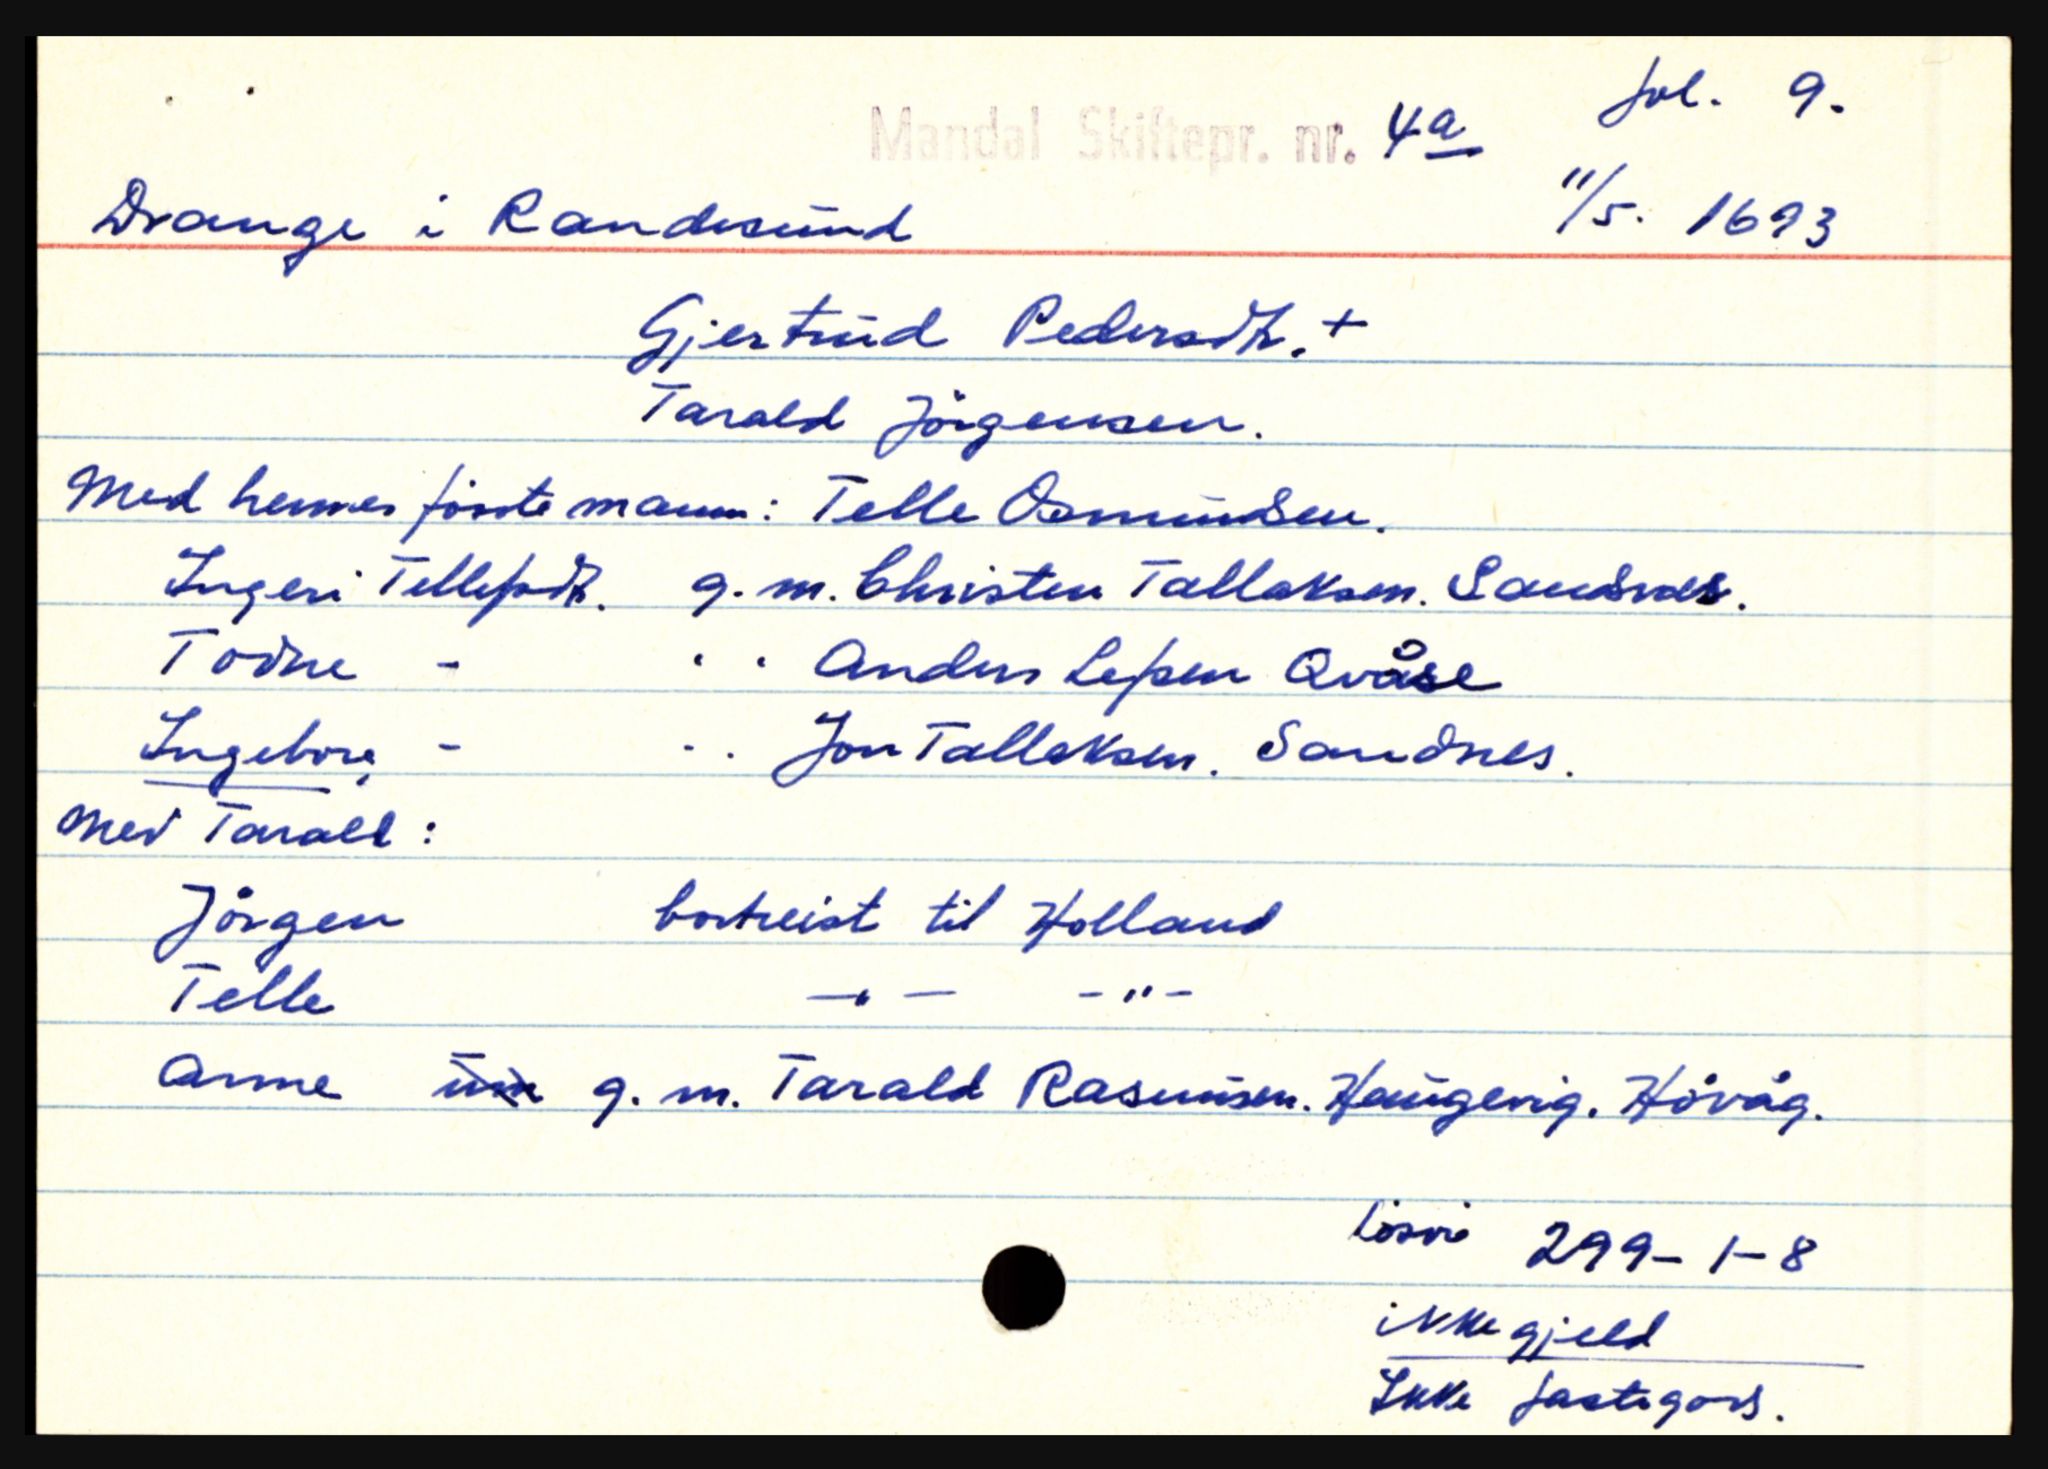 fol. 9.
Mandal Skiftepr. nr. 4a
11/5. 1693
Drange i Randesund
Gjertrud Pedersdtr. +
Tarald Jörgensen.
Med hennes förste mann: Telle Osmundsen.
Ingeri Tellefsdtr. g. m. Christen Tallaksen. Sandnes.
Todne - " " Anders Lefsen Qvåse
Ingeborg - - . Jon Tallaksen. Sandnes.
Med Tarald:
Jörgen bortreist til Holland
Telle - " - - " -
Anne um g. m. Tarald Rasmusen. Haugevig. Hövåg.
lösöre 299-1-8
ikke gjeld
Ikke fastegods.